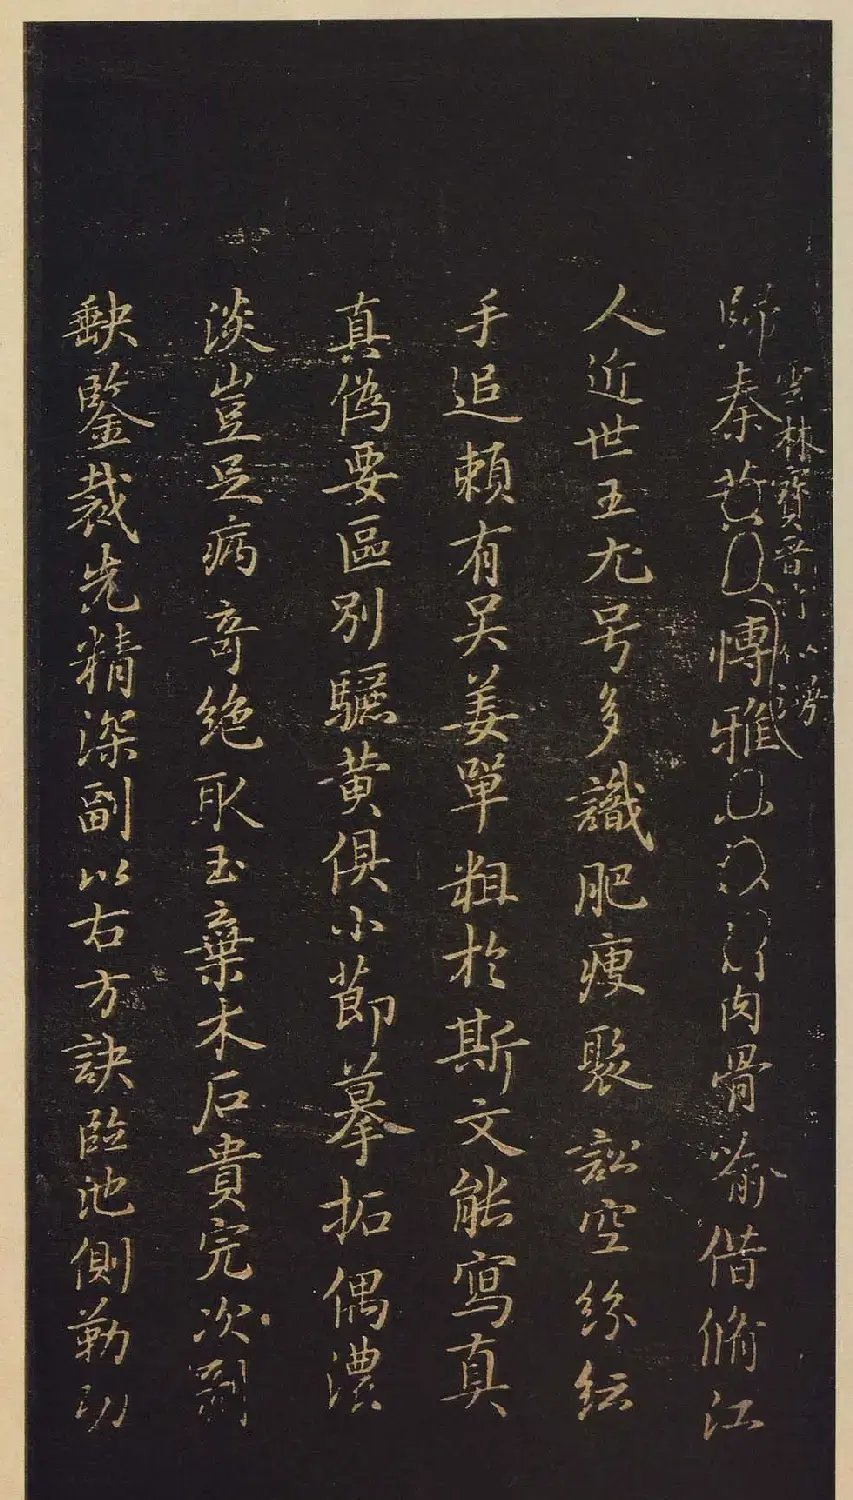 歸秦黄博雅訂肉骨喻借脩江
雲林寶晉
人近世王尤号多識肥瘦聚訟空絲紜
手追賴有吴姜單粗於斯文能寫真
真僞要區别驪黄俱小莭摹拓偶濃
淡豈足病竒绝取玉棄木石貴完次剔
缺鑒裁先精深副以右方訣臨池側勒功